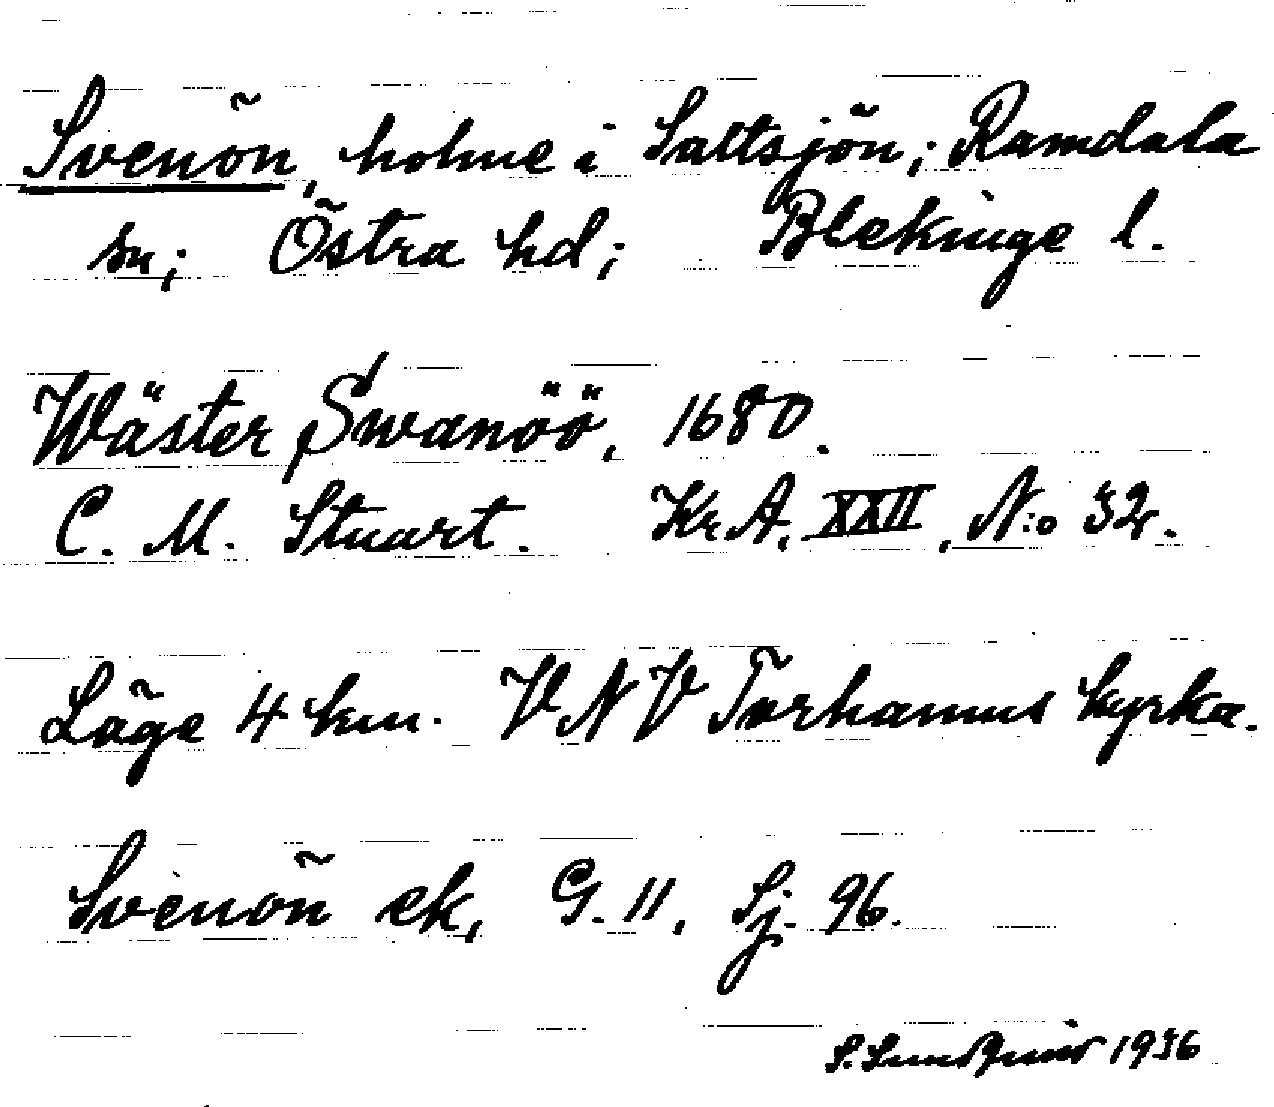 Svenön, holme i Saltsjön; Ramdala
sn; Östra hd; Blekinge l.
Wäster Swanöö, 1680.
C. M. Stuart. Kr.A. XXII, N:o 32.
Läge 4 km. VNV Torhamns kyrka.
Svenön ek, G. 11, Sj. 96.
S. Lundqvist 1936